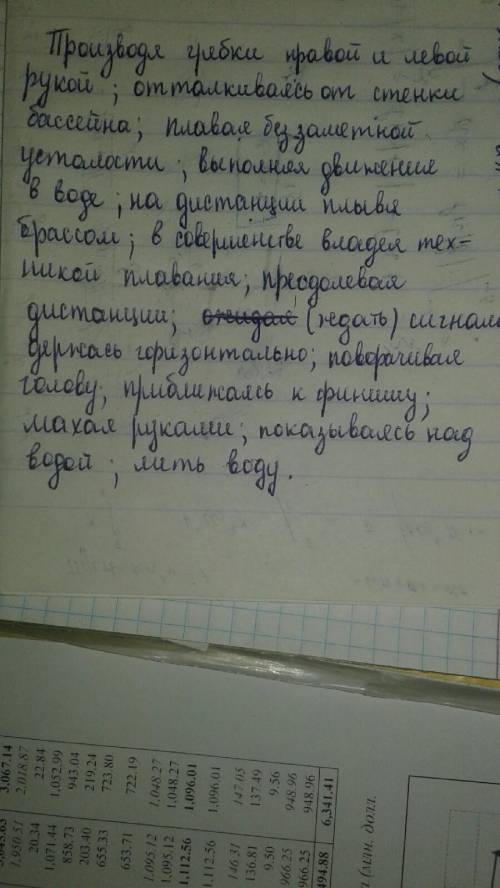 Производя грябки правой и левой
рукой; отталкиваясь от стенки
бассейна; плавая без заметной
усталости; выполняя движения
в воде; на дистанции плывя
брассом; в совершенстве владея тех-
никой плавания; преодолевая
дистанции; ожидая (ждать) сигнала
держась горизонтально; поворачивая
голову; приближаясь к финишу;
махая руками; показываясь над
водой; лить воду.
3,067.14
2,018.87
22.84
1,052.99
943.04
219.24
723.80
722.19
1,048.27
1,048.27
1,096.01
1,096.01
147.05
137.49
9.56
948.96
948.96
6,341.41
1,950.51
20.34
1,071.44
858.73
203.40
655.33
653.71
1,095.12
1,095.12
1,112.56
1,112.56
146.31
136.81
9.50
966.25
966.25
494.88
(млн. долл.